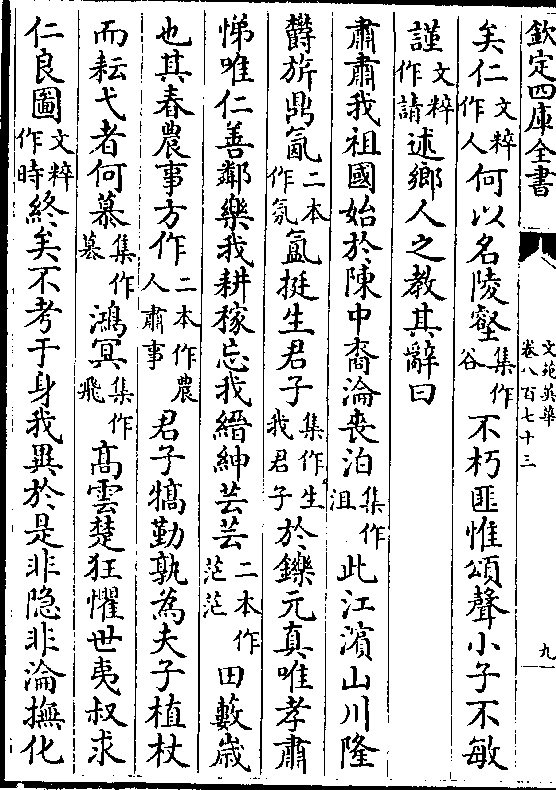 欽定四庫全書
文苑英華
卷八百七十三
九
矣仁文粹作人何以名陵壑集作谷不朽匪惟頌聲小子不敏
謹文粹作請述鄉人之教其辭曰
肅肅我祖國始於陳中裔淪喪泊集作沮此江濱山川隆
欝旂鼎氤二本作氛氲挺生君子集作生我君子於鑠元真唯孝肅
悌唯仁善鄰樂我耕稼忘我縉紳芸芸二本作茫茫田藪嵗
也其春農事方作二本作農人肅事君子犒勤孰為夫子植杖
而耘弋者何慕集作募鴻冥集作飛高雲楚狂懼世夷叔求
仁良圖文粹作時終矣不考于身我異於是非隐非淪撫化